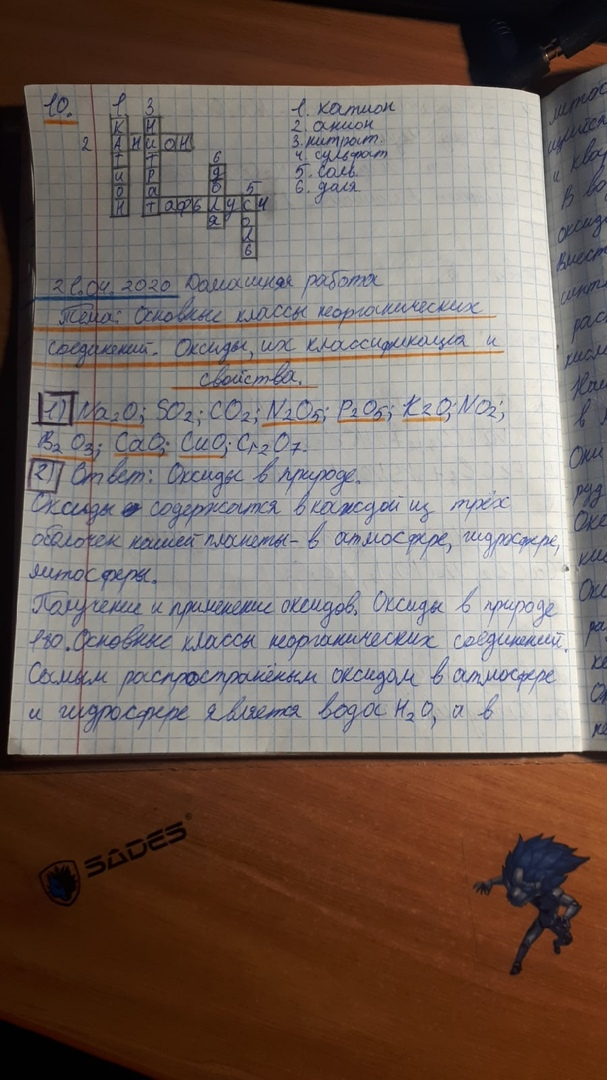 10.
1 3
1. катион
2. анион
3. нитрат.
4. сульфат
5. соль
6. доля
2
К А Т И О Н
А Н И О Н
Н И Т Р А Т
Т а ф ь л у с 4
6
Д О Л Я
5
С О Л Ь
21.04.2020 Домашняя работа
Тема: Основные классы неорганических
соединений. Оксиды, их классификация и
свойства.
1) Na2O; SO2; CO2; N2O5; P2O5; K2O; NO2;
B2O3; CaO; CuO; Cr2O7.
2) Ответ: Оксиды в природе.
Оксиды содержатся в каждой из трёх
оболочек нашей планеты - в атмосфере, гидросфере,
литосферы.
Получение и применение оксидов. Оксиды в природе
130. Основные классы неорганических соединений.
Самым распространёным оксидом в атмосфере
и гидросфере является вода H2O, а в
SADES